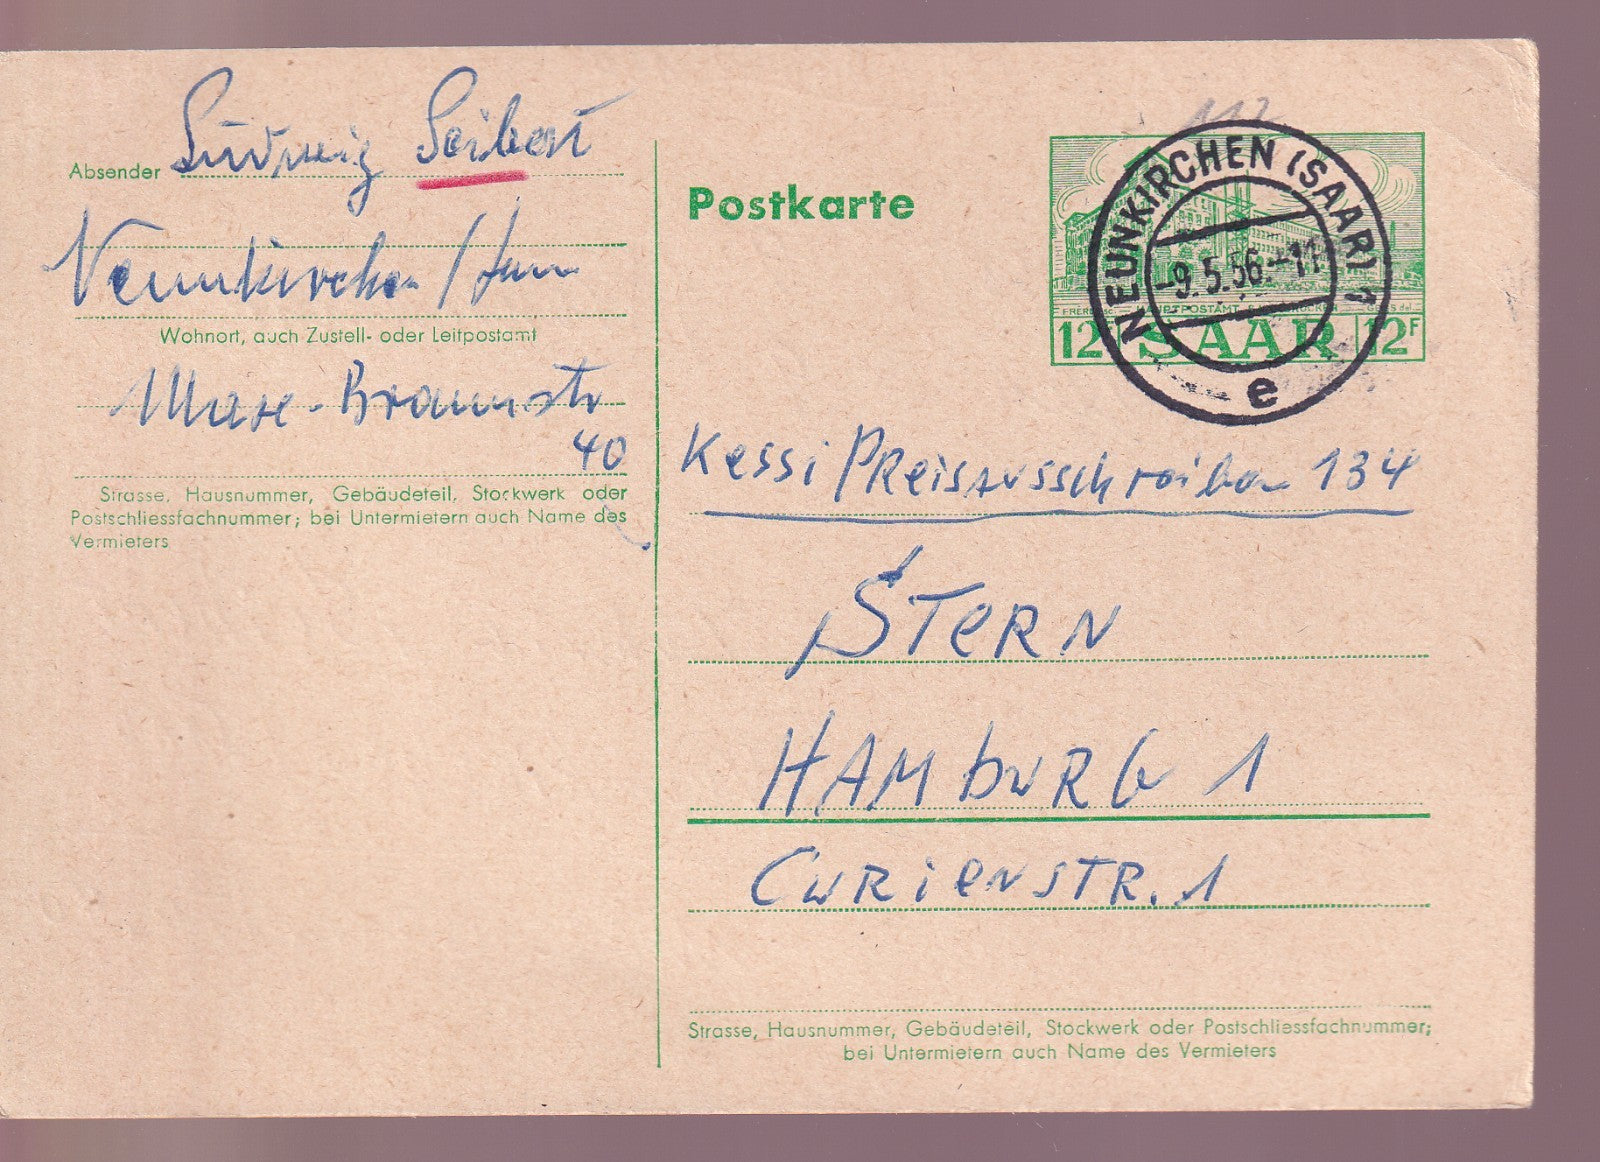 Absender Ludwig Seibert
Neunkirchen / Saar
Wohnort, auch Zustell- oder Leitpostamt
Max-Braunstr
40
Strasse, Hausnummer, Gebäudeteil, Stockwerk oder
Postschliessfachnummer; bei Untermietern auch Name des
Vermieters
112
Postkarte
NEUNKIRCHEN (SAAR) 1
-9.5.56.-11
e
12 SAAR 12F
Kessi Preisausschreiben 134
STERN
HAMBURG 1
CURIENSTR. 1
Strasse, Hausnummer, Gebäudeteil, Stockwerk oder Postschliessfachnummer;
bei Untermietern auch Name des Vermieters